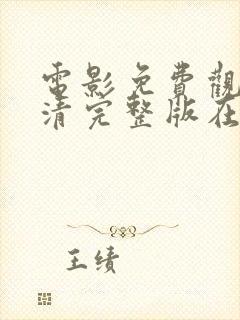 電影免費觀
清完整版在
王绩